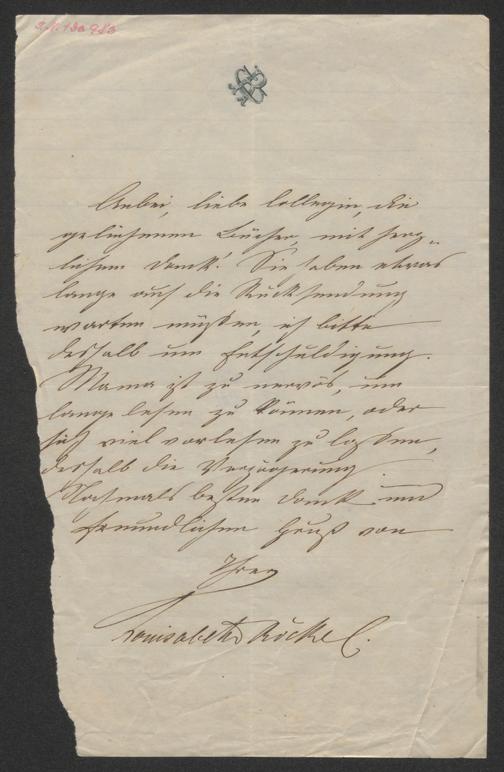 Anbei, liebe Collegin, die
geliehenen Bücher, mit herz-
lichem Dank! Sie haben etwas
lange auf die Rücksendung
warten müssen, ich bitte
deshalb um Entschuldigung.
Mama ist zu nervös, um
lange lesen zu können, oder
sich viel vorlesen zu lassen,
deshalb die Verzögerung.
Nochmals besten Dank und
freundlichen Gruß von
Ihrer
Louisabeth Röckel.